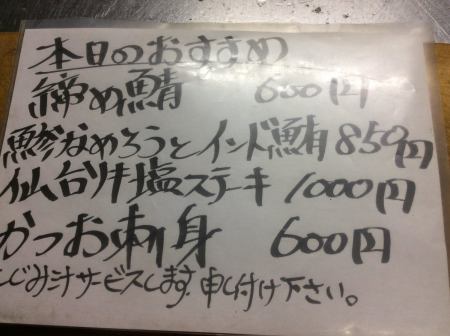 本日のおすすめ
締め鯖 600円
鯵なめろうとインド鮪 850円
仙台牛塩ステーキ 1000円
かつお刺身 600円
しじみ汁サービスします。申し付け下さい。